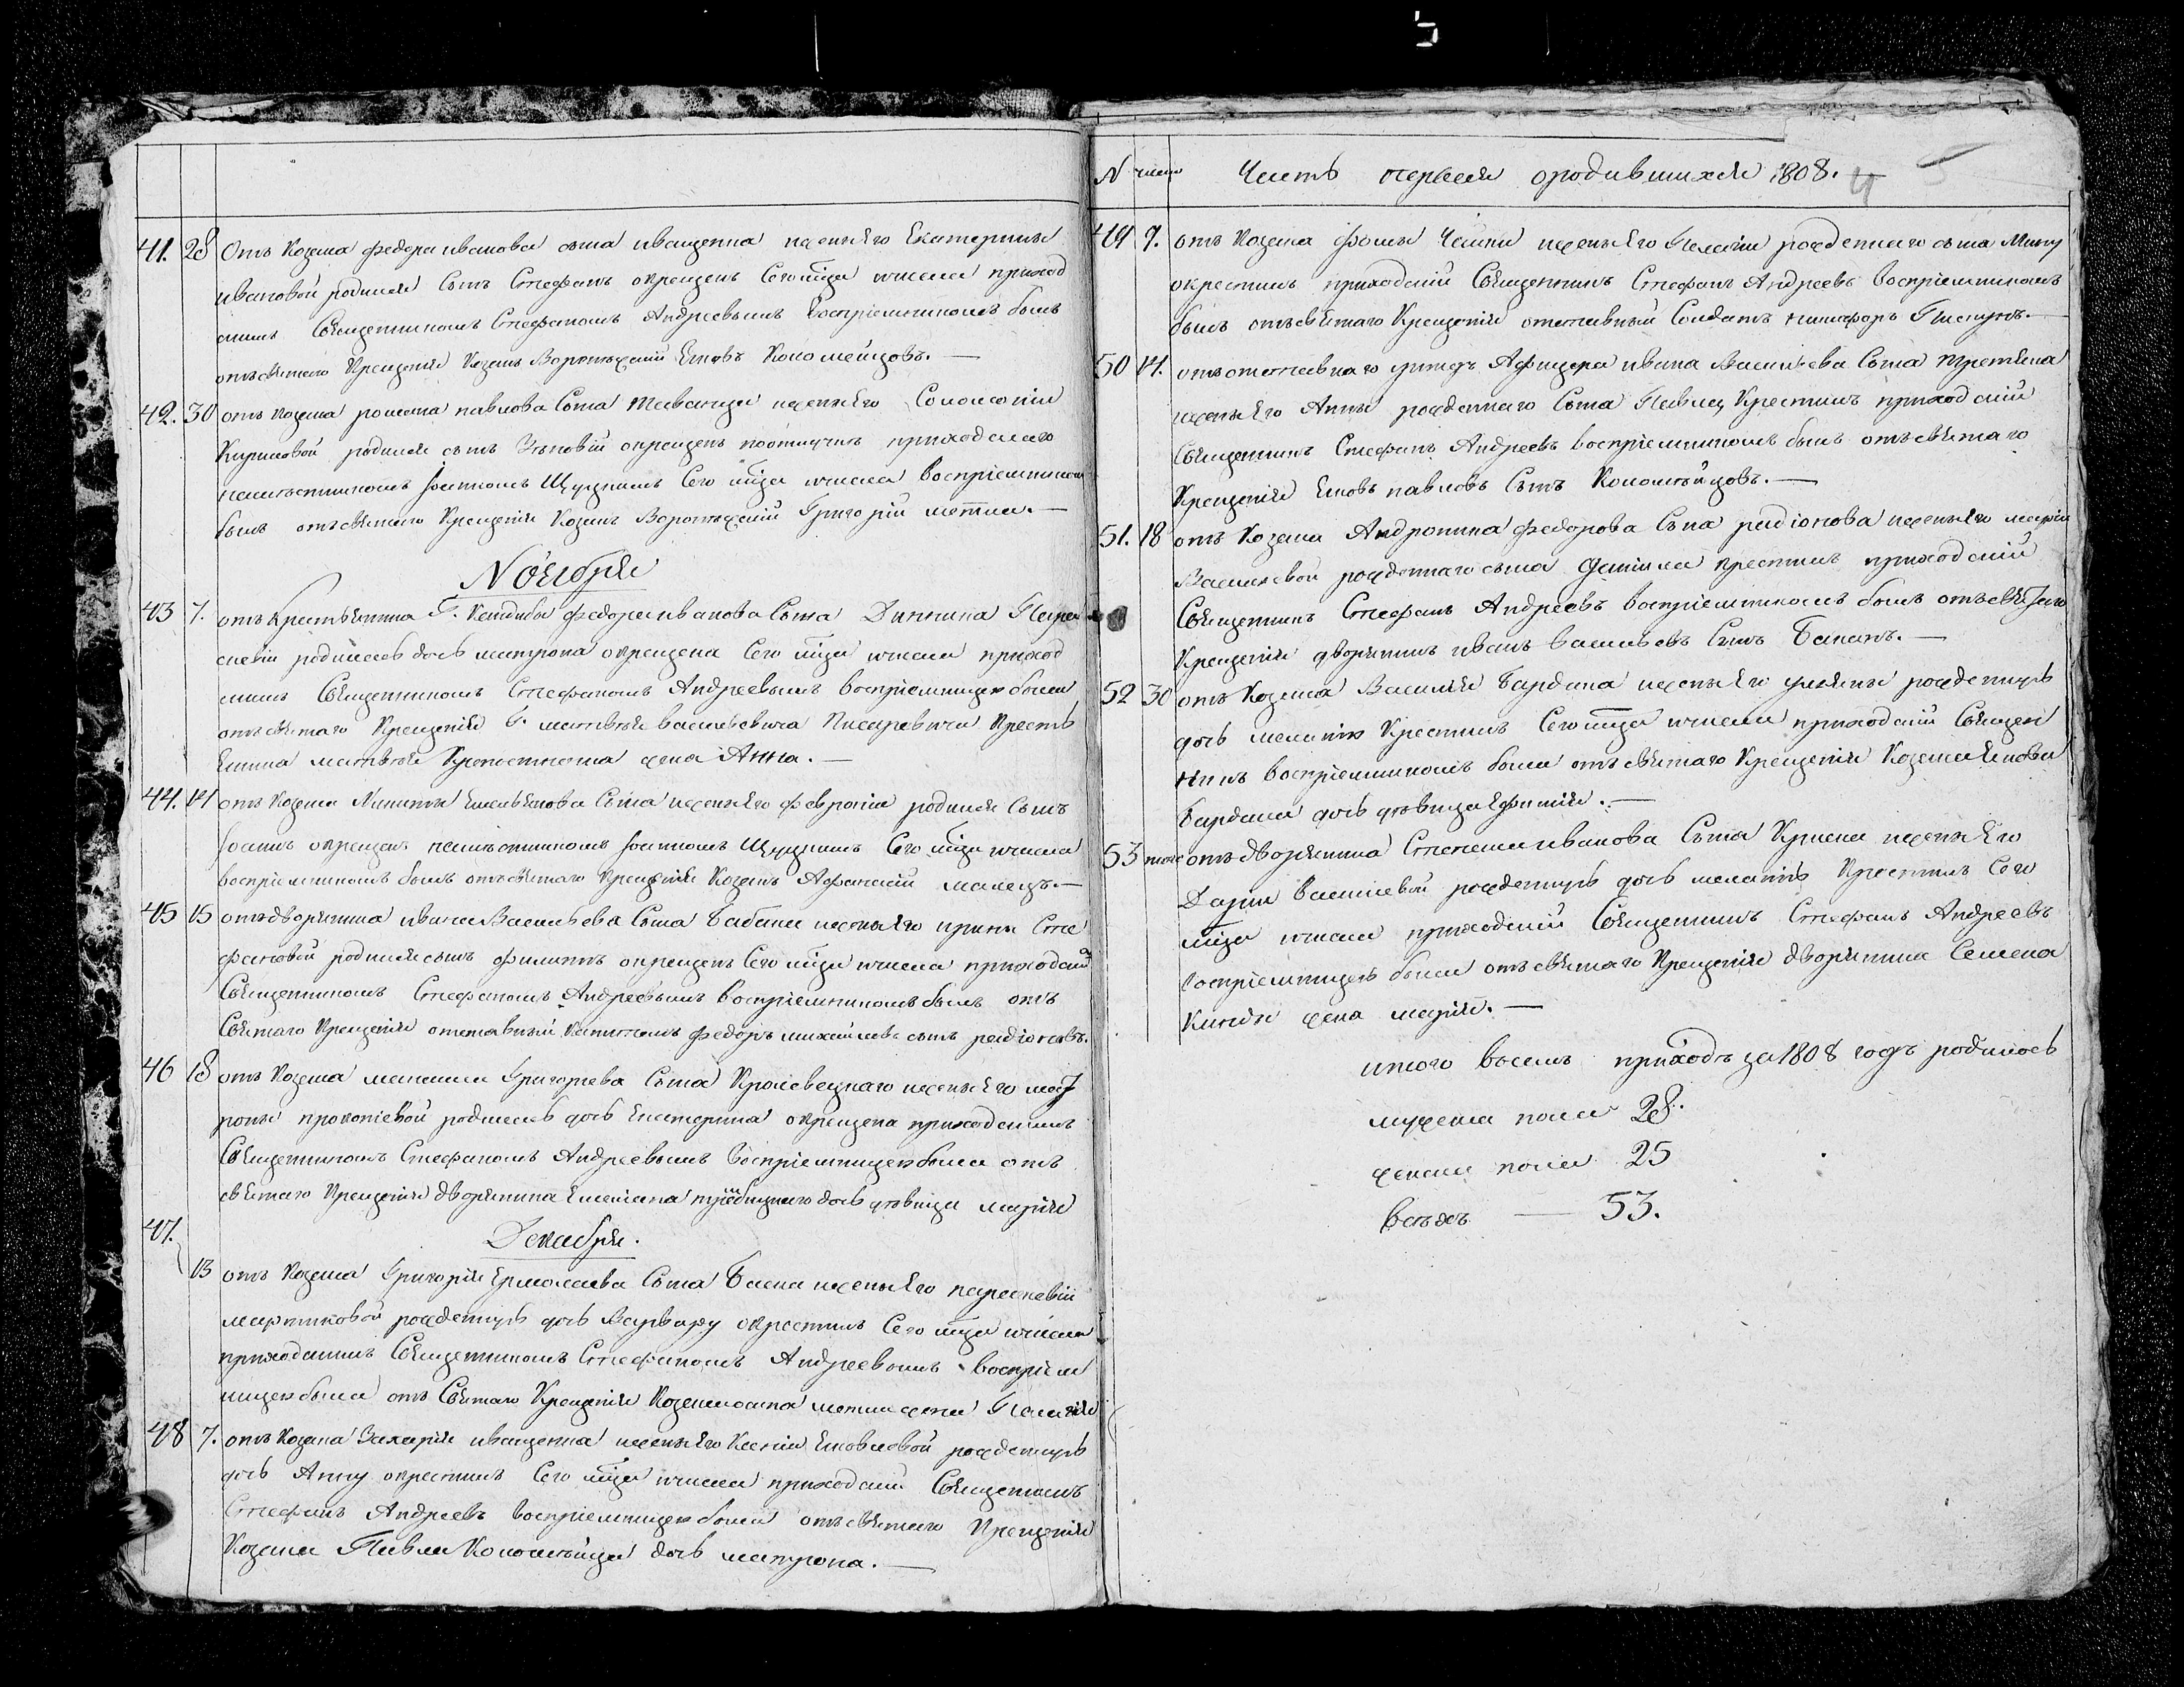 41. 28 Отъ Козака федора иванова сына иващенка ижены Его Екатерины
ивановой родился Сынъ Стефанъ окрещенъ Сего мца ичисла приход
скимъ Священникомъ Стефаномъ Андреевымъ восприемникомъ былъ
отъ святаго Крещения Козакъ Воронѣжский Яковъ Коломейцовъ.
42. 30 отъ козака романа павлова Сына ижены Его Соломонiи
Кириловой родился сынъ Зѣновiй окрещенъ приходскаго
намѣстникомъ Iоанномъ Щуцкимъ Сего мца ичисла восприемникомъ
былъ отъ святаго Крещенiя Козакъ Воронѣжскiй Григорiй
Ноября
43 7. отъ Крестьянина Г. федора иванова Сына Параи
скевiи родилась дочь матрона окрещена Сего мца ичисла приход
скимъ Священникомъ Стефаномъ Андреевымъ восприемницею была
отъ святаго Крещенiя Г. матвѣя васильевича Писаревича Кресть
янина матвѣя жена Анна.
44. 14 отъ Козака Никиты Емельянова Сына ижены Его февронiи родился Сынъ
Iоанъ окрещенъ намѣстникомъ Iоанномъ Щуцкимъ Сего мца ичисла
восприемникомъ былъ отъ святаго Крещенiя Козакъ Афанасiй малецъ.
45 15 отъ дворянина ивана Васильева Сына Бабака ижены Его ирины Сте
фановой родился сынъ филиппъ окрещенъ Сего мца ичисла приходский
Священникомъ Стефаномъ Андреевымъ восприемникомъ былъ отъ
Святаго Крещенiя отставный Капитанъ федоръ михайловъ сынъ радiоновъ.
46 18 отъ Козака Григорьева Сына Кролевецкаго ижены Его мат
роны прокопiевой родилась дочь Екатерина окрещена приходскимъ
Священникомъ Стефаномъ Андреевымъ восприемницею была отъ
святаго Крещенiя дворянина дочь дѣвица марiя
47.
Декабря.
13 отъ Козака Григорiя Ермолаева Сына ижены Его параскевiи
мартиновой рожденную дочь Варвару окрестилъ Сего мца ичисла
приходскимъ Священникомъ Стефаномъ Андреевымъ восприем
ницею была отъ Святаго Крещенiя Козака жена Пелагiя
48 7. отъ Козака Захарiя иващенка ижены Его Ксенiи Яковлевой рожденную
дочь Анну окрестилъ Сего мца ичисла приходскiй Священникъ
Стефанъ Андреевъ восприемницею была отъ святаго Крещенiя
Козака Павла Коломѣйца дочь матрона.
N число Часть первая ородившихся 1808. 4 5
49 9. отъ Козака фомы Чайки ижены Его Пелагiи рожденнаго сына Мину
окрестилъ приходскiй Священникъ Стефанъ Андреевъ восприемникомъ
былъ отъ святаго Крещенiя отставный Солдатъ никифоръ Пискунъ.
50 14. отъ отставнаго унтеръ Афицера ивана Васильева Сына
ижены Его Анны рожденнаго Сына Павла Крестилъ приходскiй
Священникъ Стефанъ Андреевъ восприемникомъ былъ отъ святаго
Крещенiя Яковъ павловъ Сынъ Коломѣйцовъ.
51. 18 отъ Козака Андроника федорова Сына радiонова ижены Его марiи
Василевой рожденнаго сына данiила крестилъ приходскiй
Священникъ Стефанъ Андреевъ восприемникомъ былъ отъ святаго
Крещенiя дворянинъ иванъ васильевъ Сынъ
52 30 отъ Козака Василiя Бардака ижены Его улiяны рожденную
дочь меланiю Крестилъ Сего мца ичисла приходскiй Священ
никъ восприемникомъ была отъ святаго Крещенiя Козака Якова
Бардака дочь дѣвица Ефимiя.
53 тоже отъ дворянина Степана иванова Сына ижены Его
Дарiи василевой рожденную дочь меланiю Крестилъ Сего
мца ичисла приходскiй Священникъ Стефанъ Андреевъ
восприемницею была отъ святаго Крещенiя дворянина Семена
жена марiя.
итого всемъ приходѣ за 1808 годъ родилось
мужеска пола 28.
женска пола 25
всѣхъ — 53.